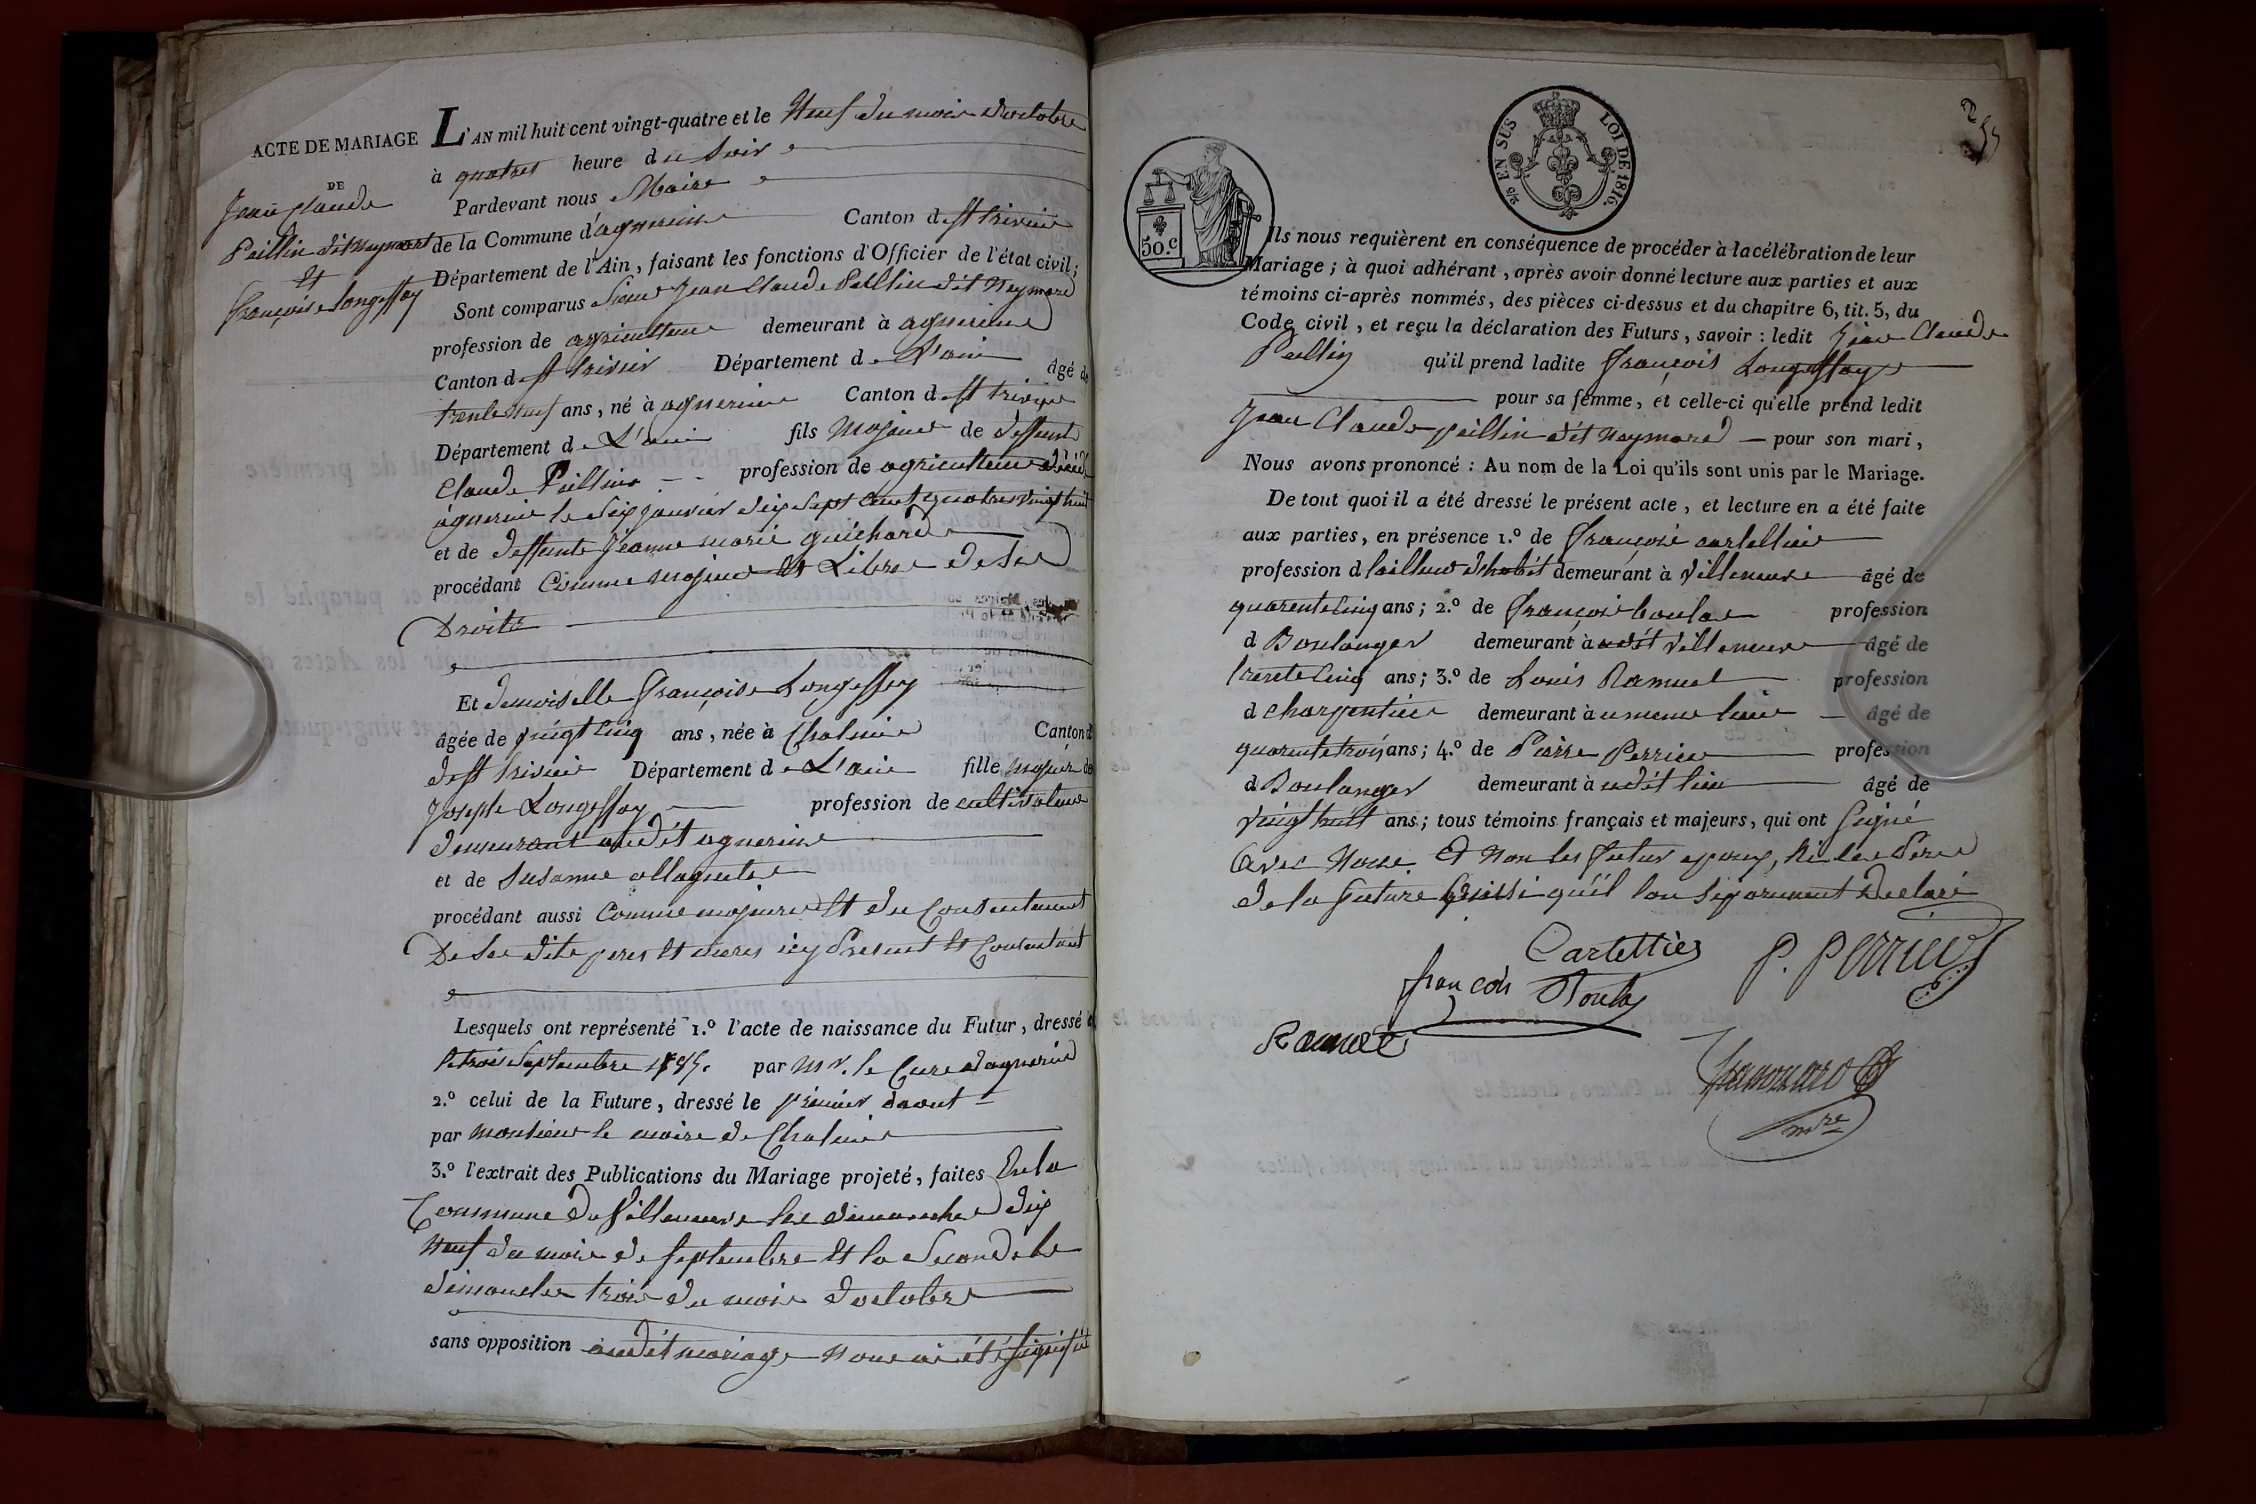 ACTE DE MARIAGE
DE
Jean Claude
Peillin dit Neymard
Et
françoise Longeffay
L'AN mil huit cent vingt-quatre et le Neuf du mois d'octobre
à quatres heure du soir
Pardevant nous Maire
de la Commune d'agnerine Canton de st trivier
Département de l'Ain, faisant les fonctions d'Officier de l'état civil;
Sont comparus sieur Jean Claude Peillin dit Neymard
profession de agriculteur demeurant à agnerine
Canton de st trivier Département de L'ain âgé de
trente neuf ans, né à agnerine Canton de st trivier
Département de L'ain fils Majeur de deffunt
Claude Peillin profession de agriculteur décédé
agnerine le dix janvier dix sept cent quatres vingt huit
et de deffunte Jeanne marie guichard
procédant Comme majeur Et Libre de Ses
Droits
Et demoiselle françoise Longeffay
âgée de vingt cinq ans, née à Chaleins Canton d
de st trivier Département de L'ain fille majeur de
Joseph Longeffay profession de cultivateur
demeurant audit agnerine
et de Susanne allagnette
procédant aussi Comme majeure Et du Consentement
De Ses dits peres Et meres icy Present Et Consentant
Lesquels ont représenté 1.º l'acte de naissance du Futur, dressé
le trois Septembre 1785. par Mr. le Cure d'agnerine
2.º celui de la Future, dressé le premier d'aout
par monsieur le maire de Chaleins
3.º l'extrait des Publications du Mariage projeté, faites En la
Commune De Villeneuve les dimanches dix
Neuf du mois de septembre Et la Seconde le
dimanche trois du mois d'octobre
sans opposition audit mariage Nous ai été signifié
255
EN SUS LOI DE 1816.
50.c
Ils nous requièrent en conséquence de procéder à la célébration de leur
Mariage; à quoi adhérant, après avoir donné lecture aux parties et aux
témoins ci-après nommés, des pièces ci-dessus et du chapitre 6, tit. 5, du
Code civil, et reçu la déclaration des Futurs, savoir: ledit Jean Claude
Peillin qu'il prend ladite françois Longeffay
pour sa femme, et celle-ci qu'elle prend ledit
Jean Claude peillin dit Neymard pour son mari,
Nous avons prononcé: Au nom de la Loi qu'ils sont unis par le Mariage.
De tout quoi il a été dressé le présent acte, et lecture en a été faite
aux parties, en présence 1.º de françois cartellier
profession d tailleur d'habit demeurant à Villeneuve âgé de
quarente cinq ans; 2.º de françois boulas profession
d Boulanger demeurant à udit Villeneuve âgé de
trente cinq ans; 3.º de Louis Ramuel profession
d charpentier demeurant à u meme lieu âgé de
quarente trois ans; 4.º de Pierre Perrier profession
d Boulanger demeurant à udit lieu âgé de
vingt huit ans; tous témoins français et majeurs, qui ont signé
avec Nous. Et Non les futur epoux, Ni les Pere
de la future qu'il l'on séparement declaré
Cartellier
P. Perrier
francois Boulas
Ramuel
mre